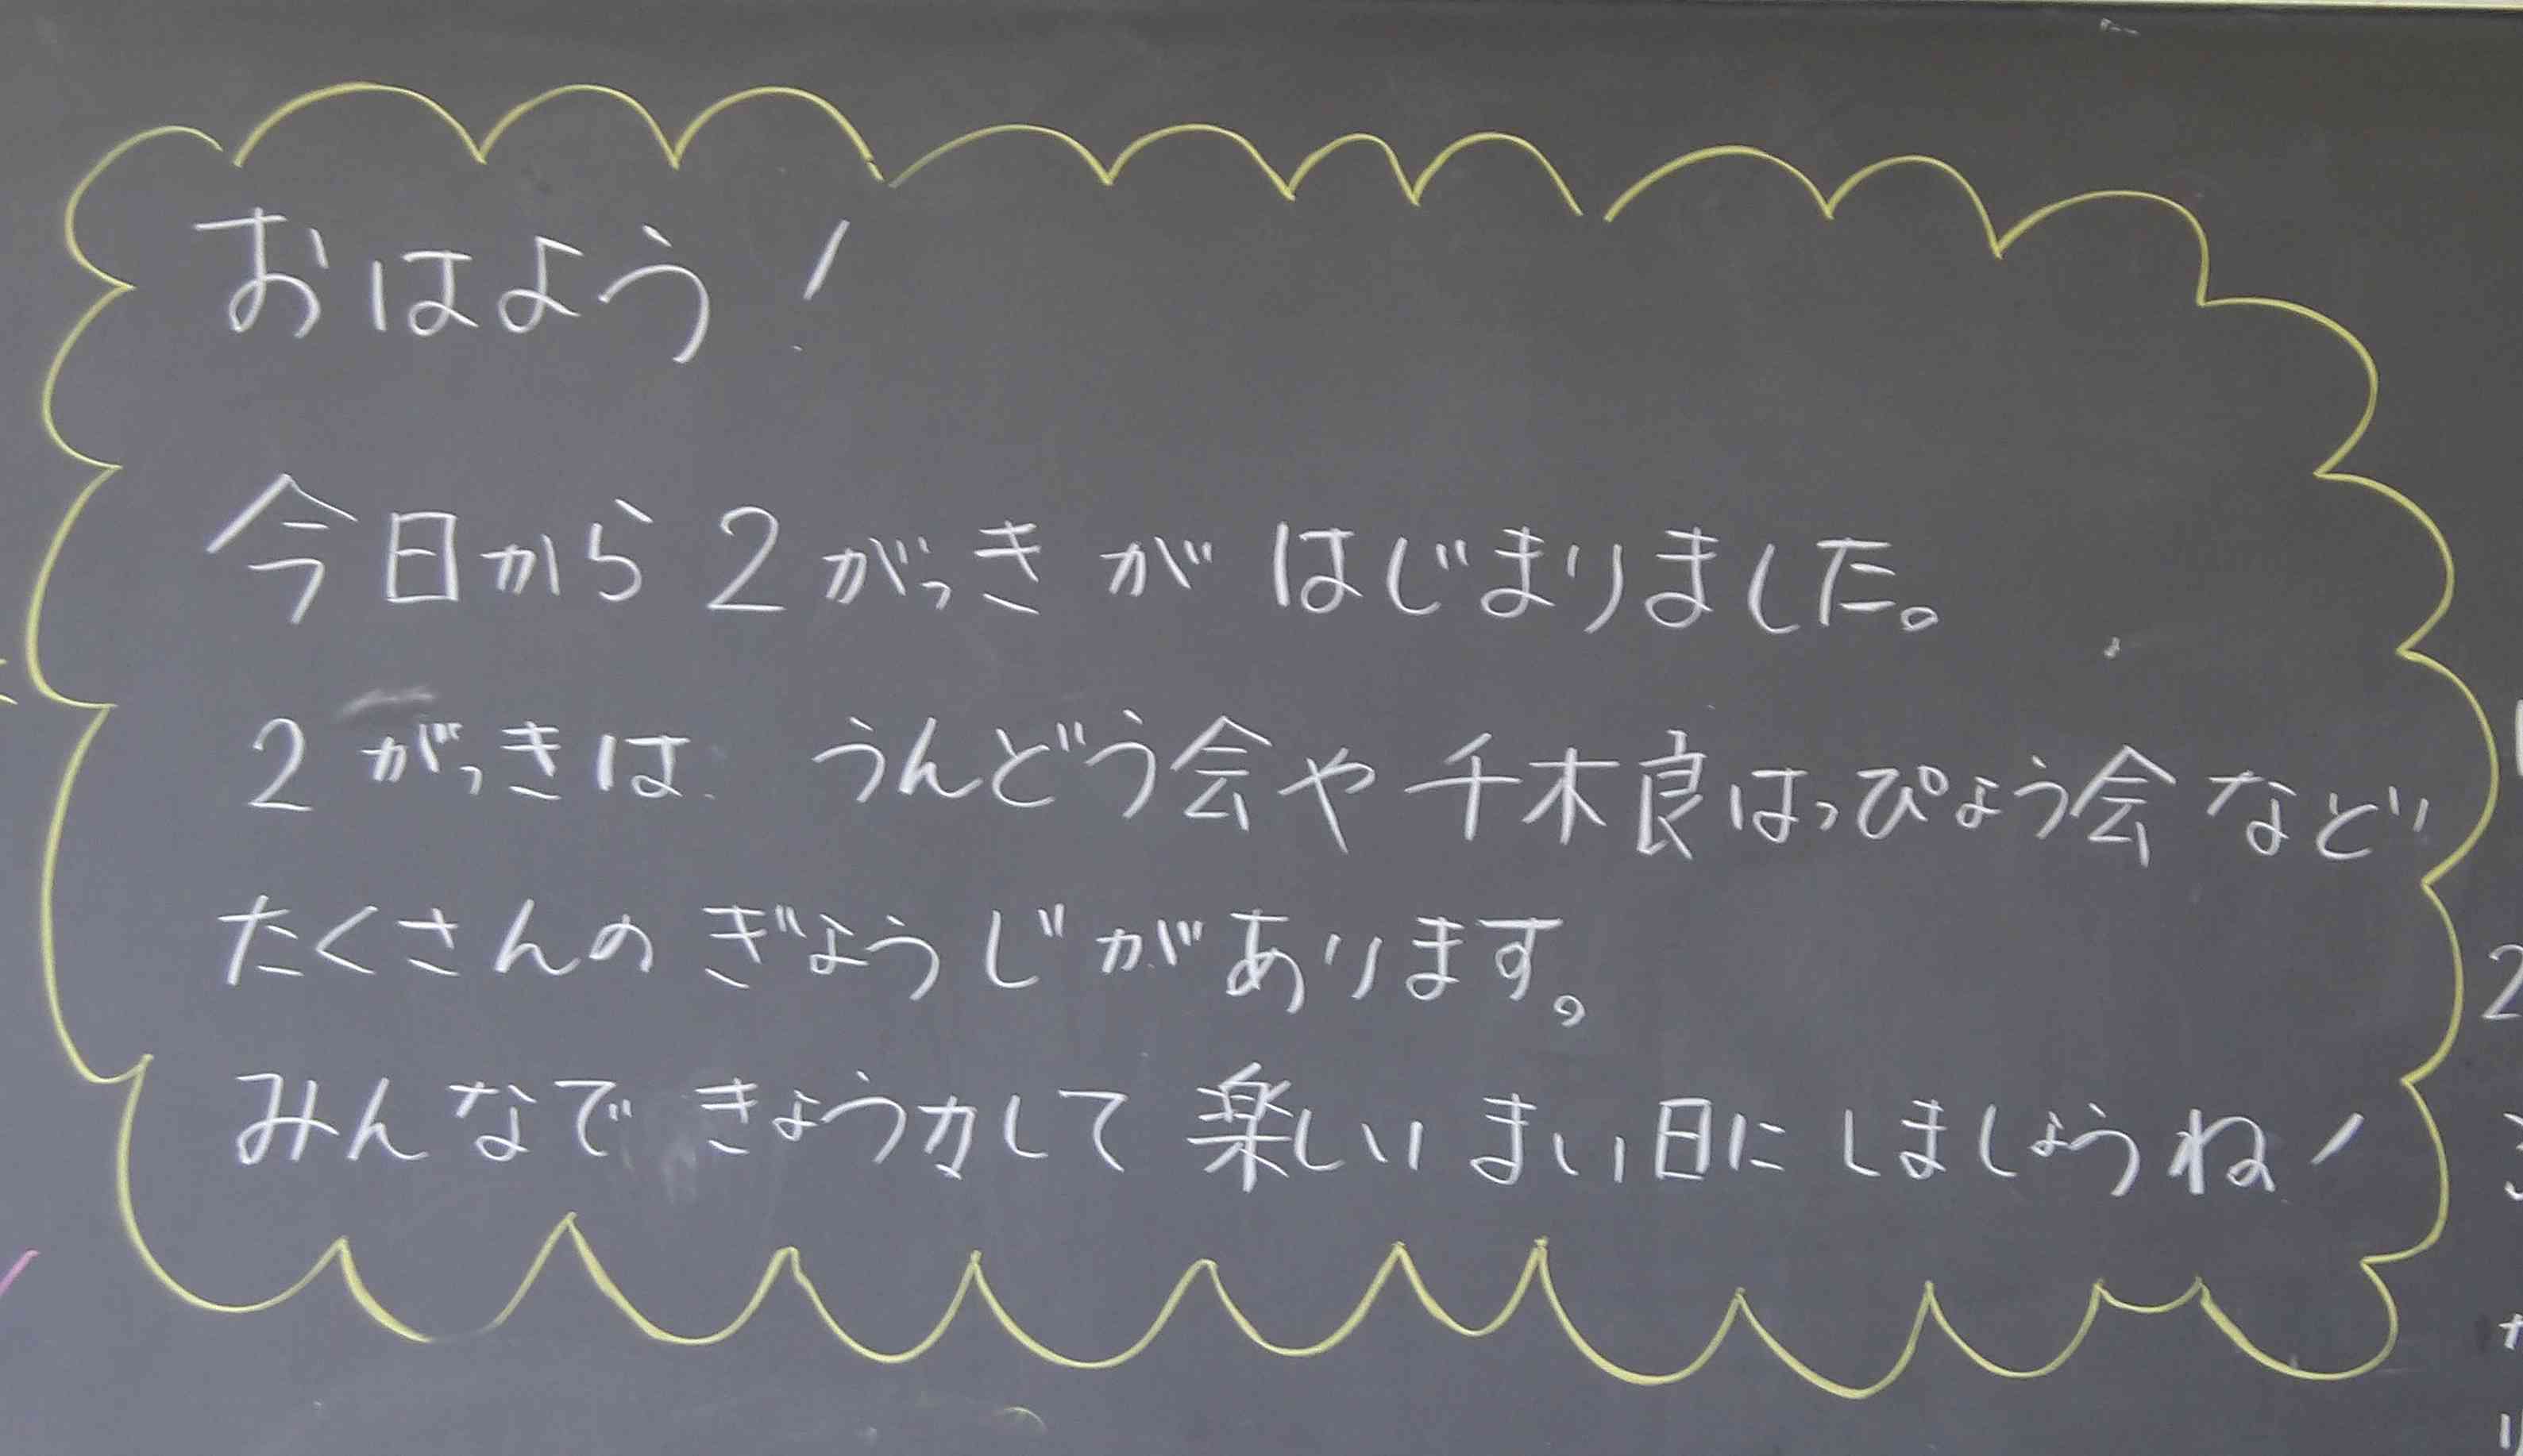 おはよう!
今日から2がっきがはじまりました。
2がっきは うんどう会や千木良はっぴょう会など
たくさんのぎょうじがあります。
みんなできょう力して楽しいまい日にしましょうね!